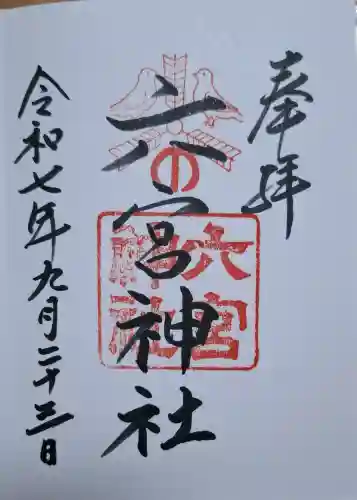 奉拝
六宮神社
六宮
神社
令和七年九月二十三日